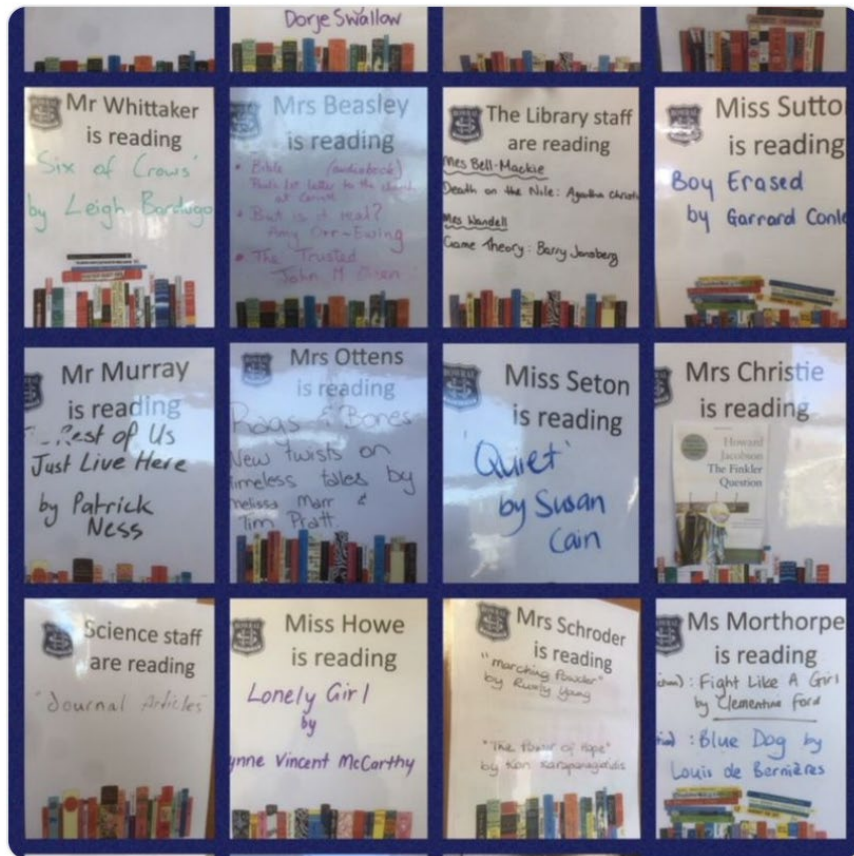 Dorje Swallow
Mr Whittaker
is reading
'Six of Crows'
by Leigh Bardugo
Mrs Beasley
is reading
• Bible (audiobook)
Paul's 1st letter to the church
at Corinth
• But is it real?
Amy Orr-Ewing
• The Trusted
John M Green
The Library staff
are reading
Mrs Bell-Mackie
Death on the Nile: Agatha Christi
Mrs Wandell
Game Theory: Barry Jonsberg
Miss Sutto
is reading
Boy Erased
by Garrard Conle
Mr Murray
is reading
Rest of Us
Just Live Here
by Patrick
Ness
Mrs Ottens
is reading
Rags & Bones
New twists on
timeless tales by
melissa Marr &
Tim Pratt.
Miss Seton
is reading
'Quiet'
by Susan
Cain
Mrs Christie
is reading
Howard
Jacobson
The Finkler
Question
Science staff
are reading
"Journal Articles"
Miss Howe
is reading
Lonely Girl
by
ynne Vincent McCarthy
Mrs Schroder
is reading
"marching Powder"
by Rusty Young
"The Power of Hope"
by Kon Karapanagiotidis
Ms Morthorpe
is reading
: Fight Like A Girl
by Clementine Ford
: Blue Dog by
Louis de Bernières